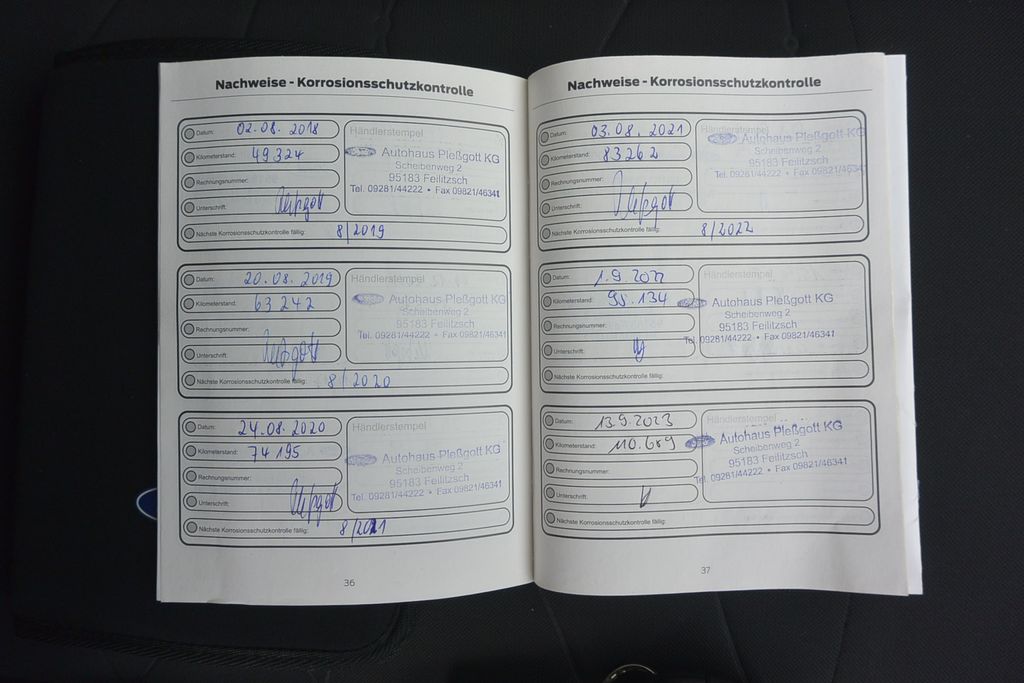 Nachweise - Korrosionsschutzkontrolle
Datum: 02.08.2018
Kilometerstand: 49324
Rechnungsnummer:
Unterschrift:
Nächste Korrosionsschutzkontrolle fällig: 8/2019
Händlerstempel
Autohaus Pleßgott KG
Scheibenweg 2
95183 Feilitzsch
Tel. 09281/44222 • Fax 09821/46341
Datum: 20.08.2019
Kilometerstand: 63242
Rechnungsnummer:
Unterschrift:
Nächste Korrosionsschutzkontrolle fällig: 8/2020
Händlerstempel
Autohaus Pleßgott KG
Scheibenweg 2
95183 Feilitzsch
Tel. 09281/44222 • Fax 09821/46341
Datum: 24.08.2020
Kilometerstand: 74195
Rechnungsnummer:
Unterschrift:
Nächste Korrosionsschutzkontrolle fällig: 8/2021
Händlerstempel
Autohaus Pleßgott KG
Scheibenweg 2
95183 Feilitzsch
Tel. 09281/44222 • Fax 09821/46341
36
Nachweise - Korrosionsschutzkontrolle
Datum: 03.08.2021
Kilometerstand: 83262
Rechnungsnummer:
Unterschrift:
Nächste Korrosionsschutzkontrolle fällig: 8/2022
Händlerstempel
Autohaus Pleßgott KG
Scheibenweg 2
95183 Feilitzsch
Tel. 09281/44222 • Fax 09821/46341
Datum: 1.9.2022
Kilometerstand: 95.134
Rechnungsnummer:
Unterschrift:
Nächste Korrosionsschutzkontrolle fällig:
Händlerstempel
Autohaus Pleßgott KG
Scheibenweg 2
95183 Feilitzsch
Tel. 09281/44222 • Fax 09821/46341
Datum: 13.9.2023
Kilometerstand: 110.689
Rechnungsnummer:
Unterschrift:
Nächste Korrosionsschutzkontrolle fällig:
Händlerstempel
Autohaus Pleßgott KG
Scheibenweg 2
95183 Feilitzsch
Tel. 09281/44222 • Fax 09821/46341
37